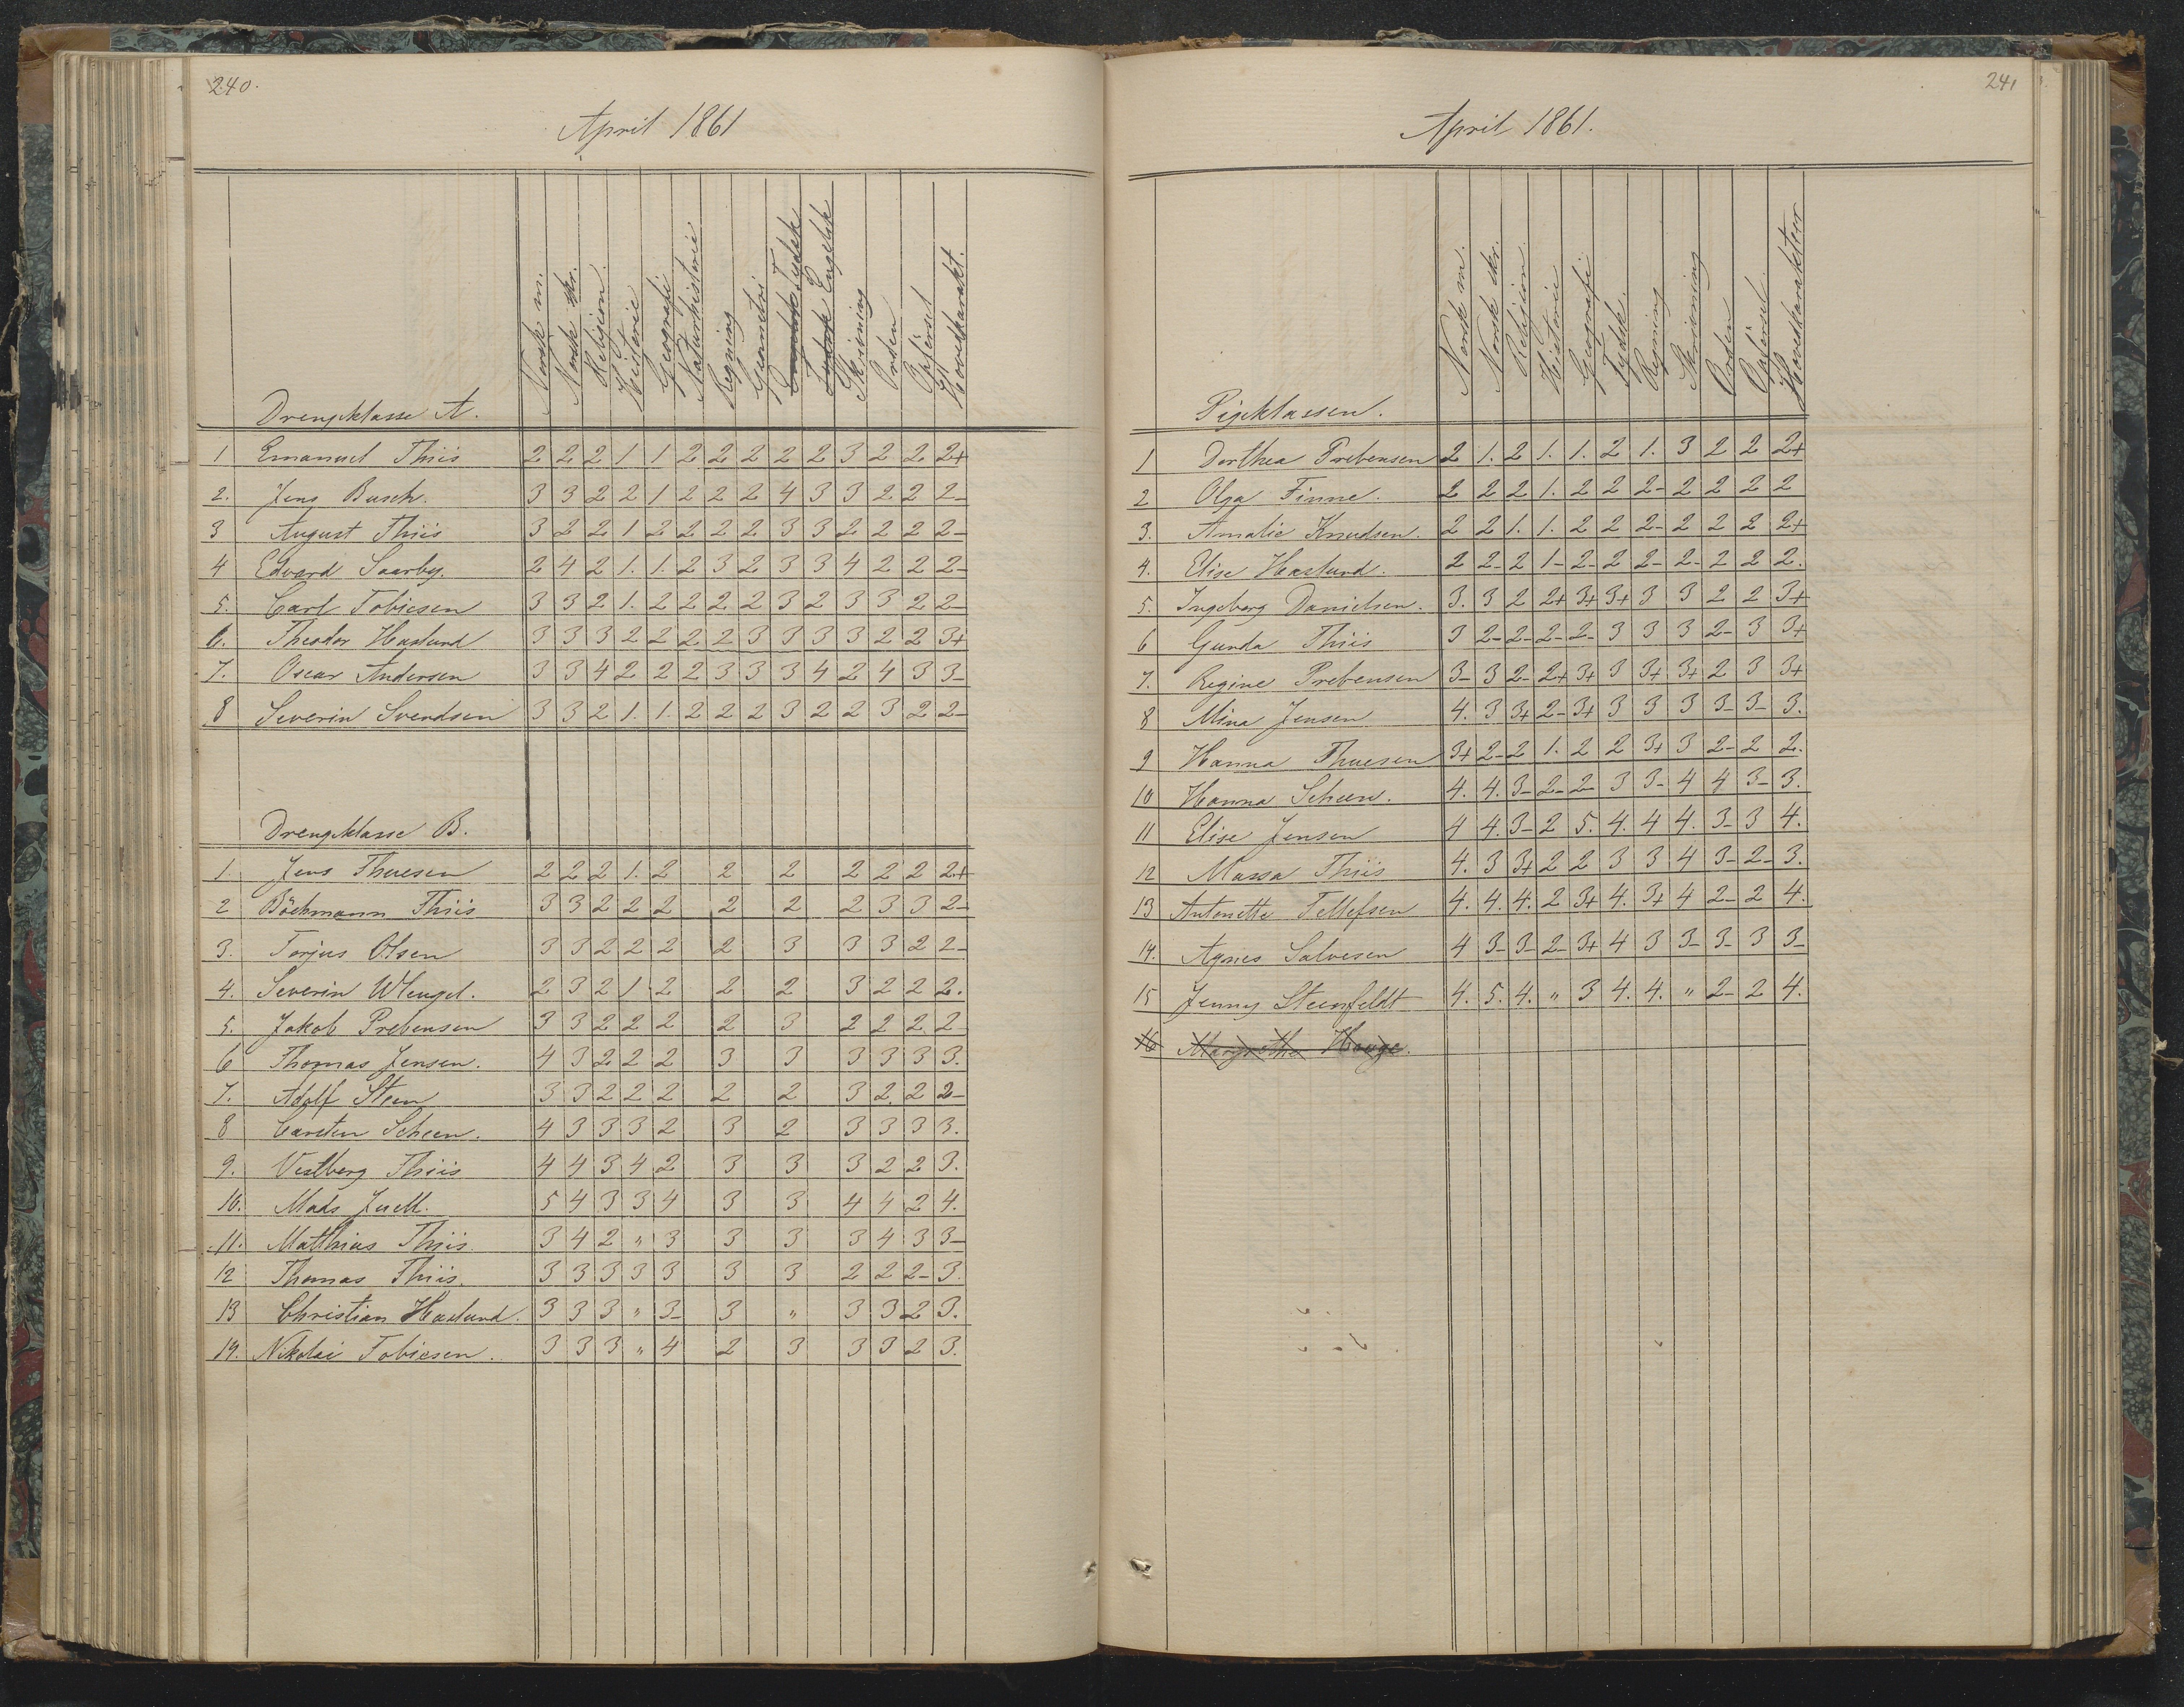 240.
April 1861
Drengeklasse A. Norsk m. Norsk skr. Religion. Historie Geografi Naturhistorie Regning Geometri Engelsk Tydsk Tydsk Engelsk Skrivning Orden Opførsel Hovedkarakt.
1 Emanuel Thiis 2 2 2 1 1 2 2 2 2 2 3 2 2 2+
2. Jens Busch. 3 3 2 2 1 2 2 2 4 3 3 2 2 2-
3 August Thiis 3 2 2 1 2 2 2 2 3 3 2 2 2 2-
4 Edvard Saarby. 2 4 2 1. 1. 2 3 2 3 3 4 2 2 2-
5. Carl Tobiesen 3 3 2 1. 2 2 2 2 3 2 3 3 2 2-
6. Theodor Haslund 3 3 3 2 2 2 2 3 3 3 3 2 2 3+
7. Oscar Andersen 3 3 4 2 2 2 3 3 3 4 2 4 3 3-
8 Severin Svendsen 3 3 2 1. 1. 2 2 2 3 2 2 3 2 2-
Drengeklasse B.
1. Jens Thuesen 2 2 2 1. 2 2 2 2 2 2 2+
2 Böckmann Thiis 3 3 2 2 2 2 2 2 3 3 2-
3. Torjus Olsen 3 3 2 2 2 2 3 3 3 2 2-
4. Severin Wleugel. 2 3 2 1 2 2 2 3 2 2 2.
5. Jakob Prebensen 3 3 2 2 2 2 3 2 2 2 2
6 Thomas Jensen. 4 3 2 2 2 3 3 3 3 3 3.
7. Adolf Steen 3 3 2 2 2 2 2 3 2 2 2-
8 Carsten Scheen. 4 3 3 3 2 3 2 3 3 3 3.
9. Vestberg Thiis 4 4 3 4 2 3 3 3 2 2 3.
10. Mads Juell. 5 4 3 3 4 3 3 4 4 2 4.
11. Matthias Thiis 3 4 2 " 3 3 3 3 4 3 3-
12 Thomas Thiis. 3 3 3 3 3 3 3 2 2 2- 3.
13 Christian Haslund. 3 3 3 " 3- 3 " 3 3 2 3.
14. Nikolai Tobiesen. 3 3 3 " 4 2 3 3 3 2 3.
241
April 1861.
Pigeklassen. Norsk m. Norsk skr. Religion. Historie Geografi Tydsk. Regning Skrivning Orden Opførsel. Hovedkarakteer
1 Dorthea Prebensen 2 1. 2 1. 1. 2 1. 3 2 2 2+
2 Olga Finne. 2 2 2 1. 2 2 2- 2 2 2 2
3. Amalie Knudsen. 2 2 1. 1. 2 2 2- 2 2 2 2+
4. Elise Haslund. 2 2- 2 1- 2- 2 2- 2- 2 2 2.
5. Ingeborg Danielsen. 3. 3 2 2+ 3+ 3+ 3 3 2 2 3+
6 Gunda Thiis 3 2- 2- 2- 2- 3 3 3 2- 3 3+
7. Regine Prebensen 3- 3 2- 2+ 3+ 3 3+ 3+ 2 3 3+
8 Mina Jensen 4. 3 3+ 2- 3+ 3 3 3 3- 3- 3.
9 Hanna Thuesen 3+ 2- 2 1. 2 2 3+ 3 2- 2 2.
10 Hanna Scheen. 4. 4. 3- 2- 2- 3 3- 4 4 3- 3.
11 Elise Jensen 4 4. 3- 2 5. 4. 4 4. 3- 3 4.
12 Massa Thiis 4. 3 3+ 2 2 3 3 4 3- 2- 3.
13 Antonette Tellefsen 4. 4. 4. 2 3+ 4. 3+ 4 2- 2 4.
14. Agnes Salvesen 4 3- 3- 2- 3+ 4 3 3- 3- 3 3-
15 Jenny Steenfeldt 4. 5. 4. " 3 4. 4. " 2- 2 4.
16 Margrethe Hauge.